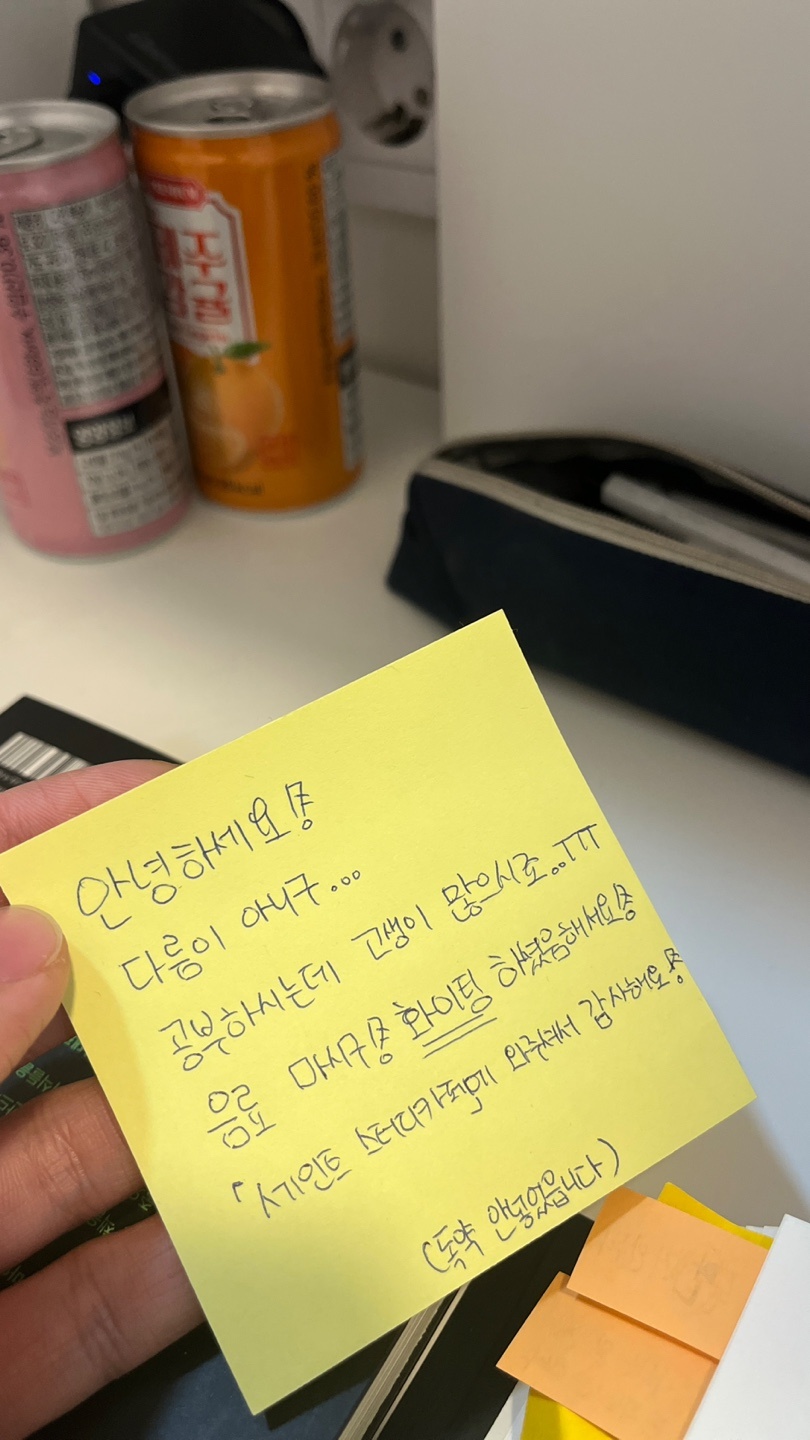 제주
감귤
영양정보
안녕하세요!
다름이 아니구...
공부하시는데 고생이 많으시죠..ㅠㅠ
음료 마시구! 화이팅 하셨음해서요!
「스터디카페」에 와주셔서 감사해요!
(독약 안넣었습니다)